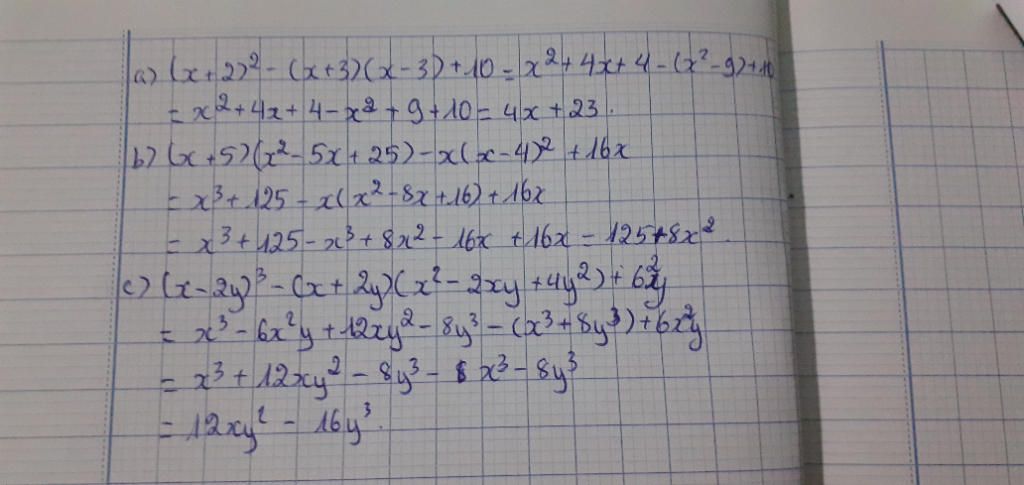 a) (x+2)² - (x+3)(x-3) + 10 = x² + 4x + 4 - (x² - 9) + 10
= x² + 4x + 4 - x² + 9 + 10 = 4x + 23.
b) (x+5)(x² - 5x + 25) - x(x-4)² + 16x
= x³ + 125 - x(x² - 8x + 16) + 16x
= x³ + 125 - x³ + 8x² - 16x + 16x = 125 + 8x².
c) (x - 2y)³ - (x + 2y)(x² - 2xy + 4y²) + 6x²y
= x³ - 6x²y + 12xy² - 8y³ - (x³ + 8y³) + 6x²y
= x³ + 12xy² - 8y³ - x³ - 8y³
= 12xy² - 16y³.